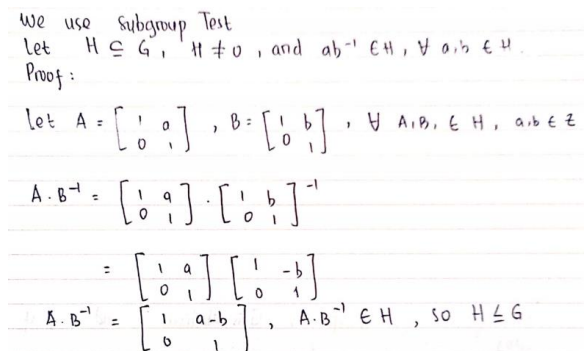 We use Subgroup Test
Let H ⊆ G, H ≠ 0, and ab⁻¹ ∈ H, ∀ a,b ∈ H.
Proof:
Let A = [1 a; 0 1], B = [1 b; 0 1], ∀ A,B, ∈ H, a,b ∈ Z
A·B⁻¹ = [1 a; 0 1] · [1 b; 0 1]⁻¹
= [1 a; 0 1] [1 -b; 0 1]
A·B⁻¹ = [1 a-b; 0 1], A·B⁻¹ ∈ H, so H ≤ G